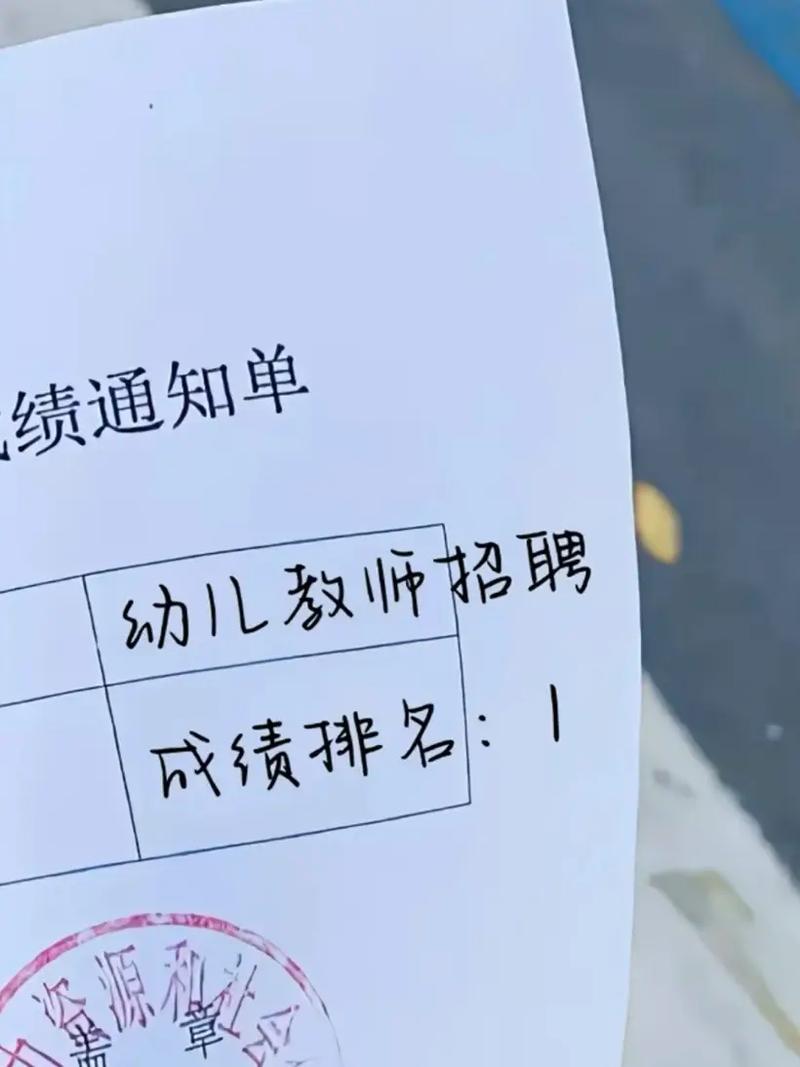 绩通知单
幼儿教师招聘
成绩排名：1
力资源和社会
盖 章